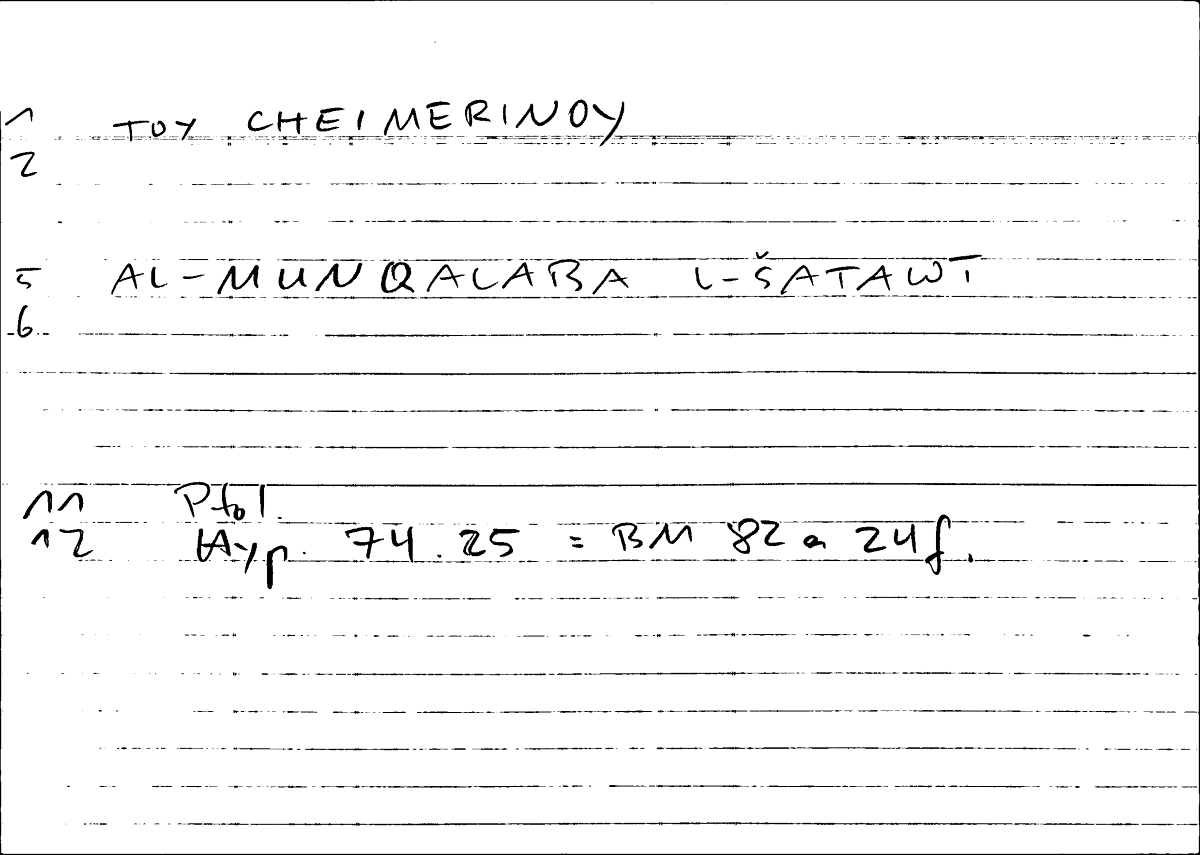 1 TOY CHEIMERINOY
2
5 AL-MUNQALABA L-ŠATAWĪ
6
11 Ptol.
12 Hyp. 74.25 = BM 82 a 24f.